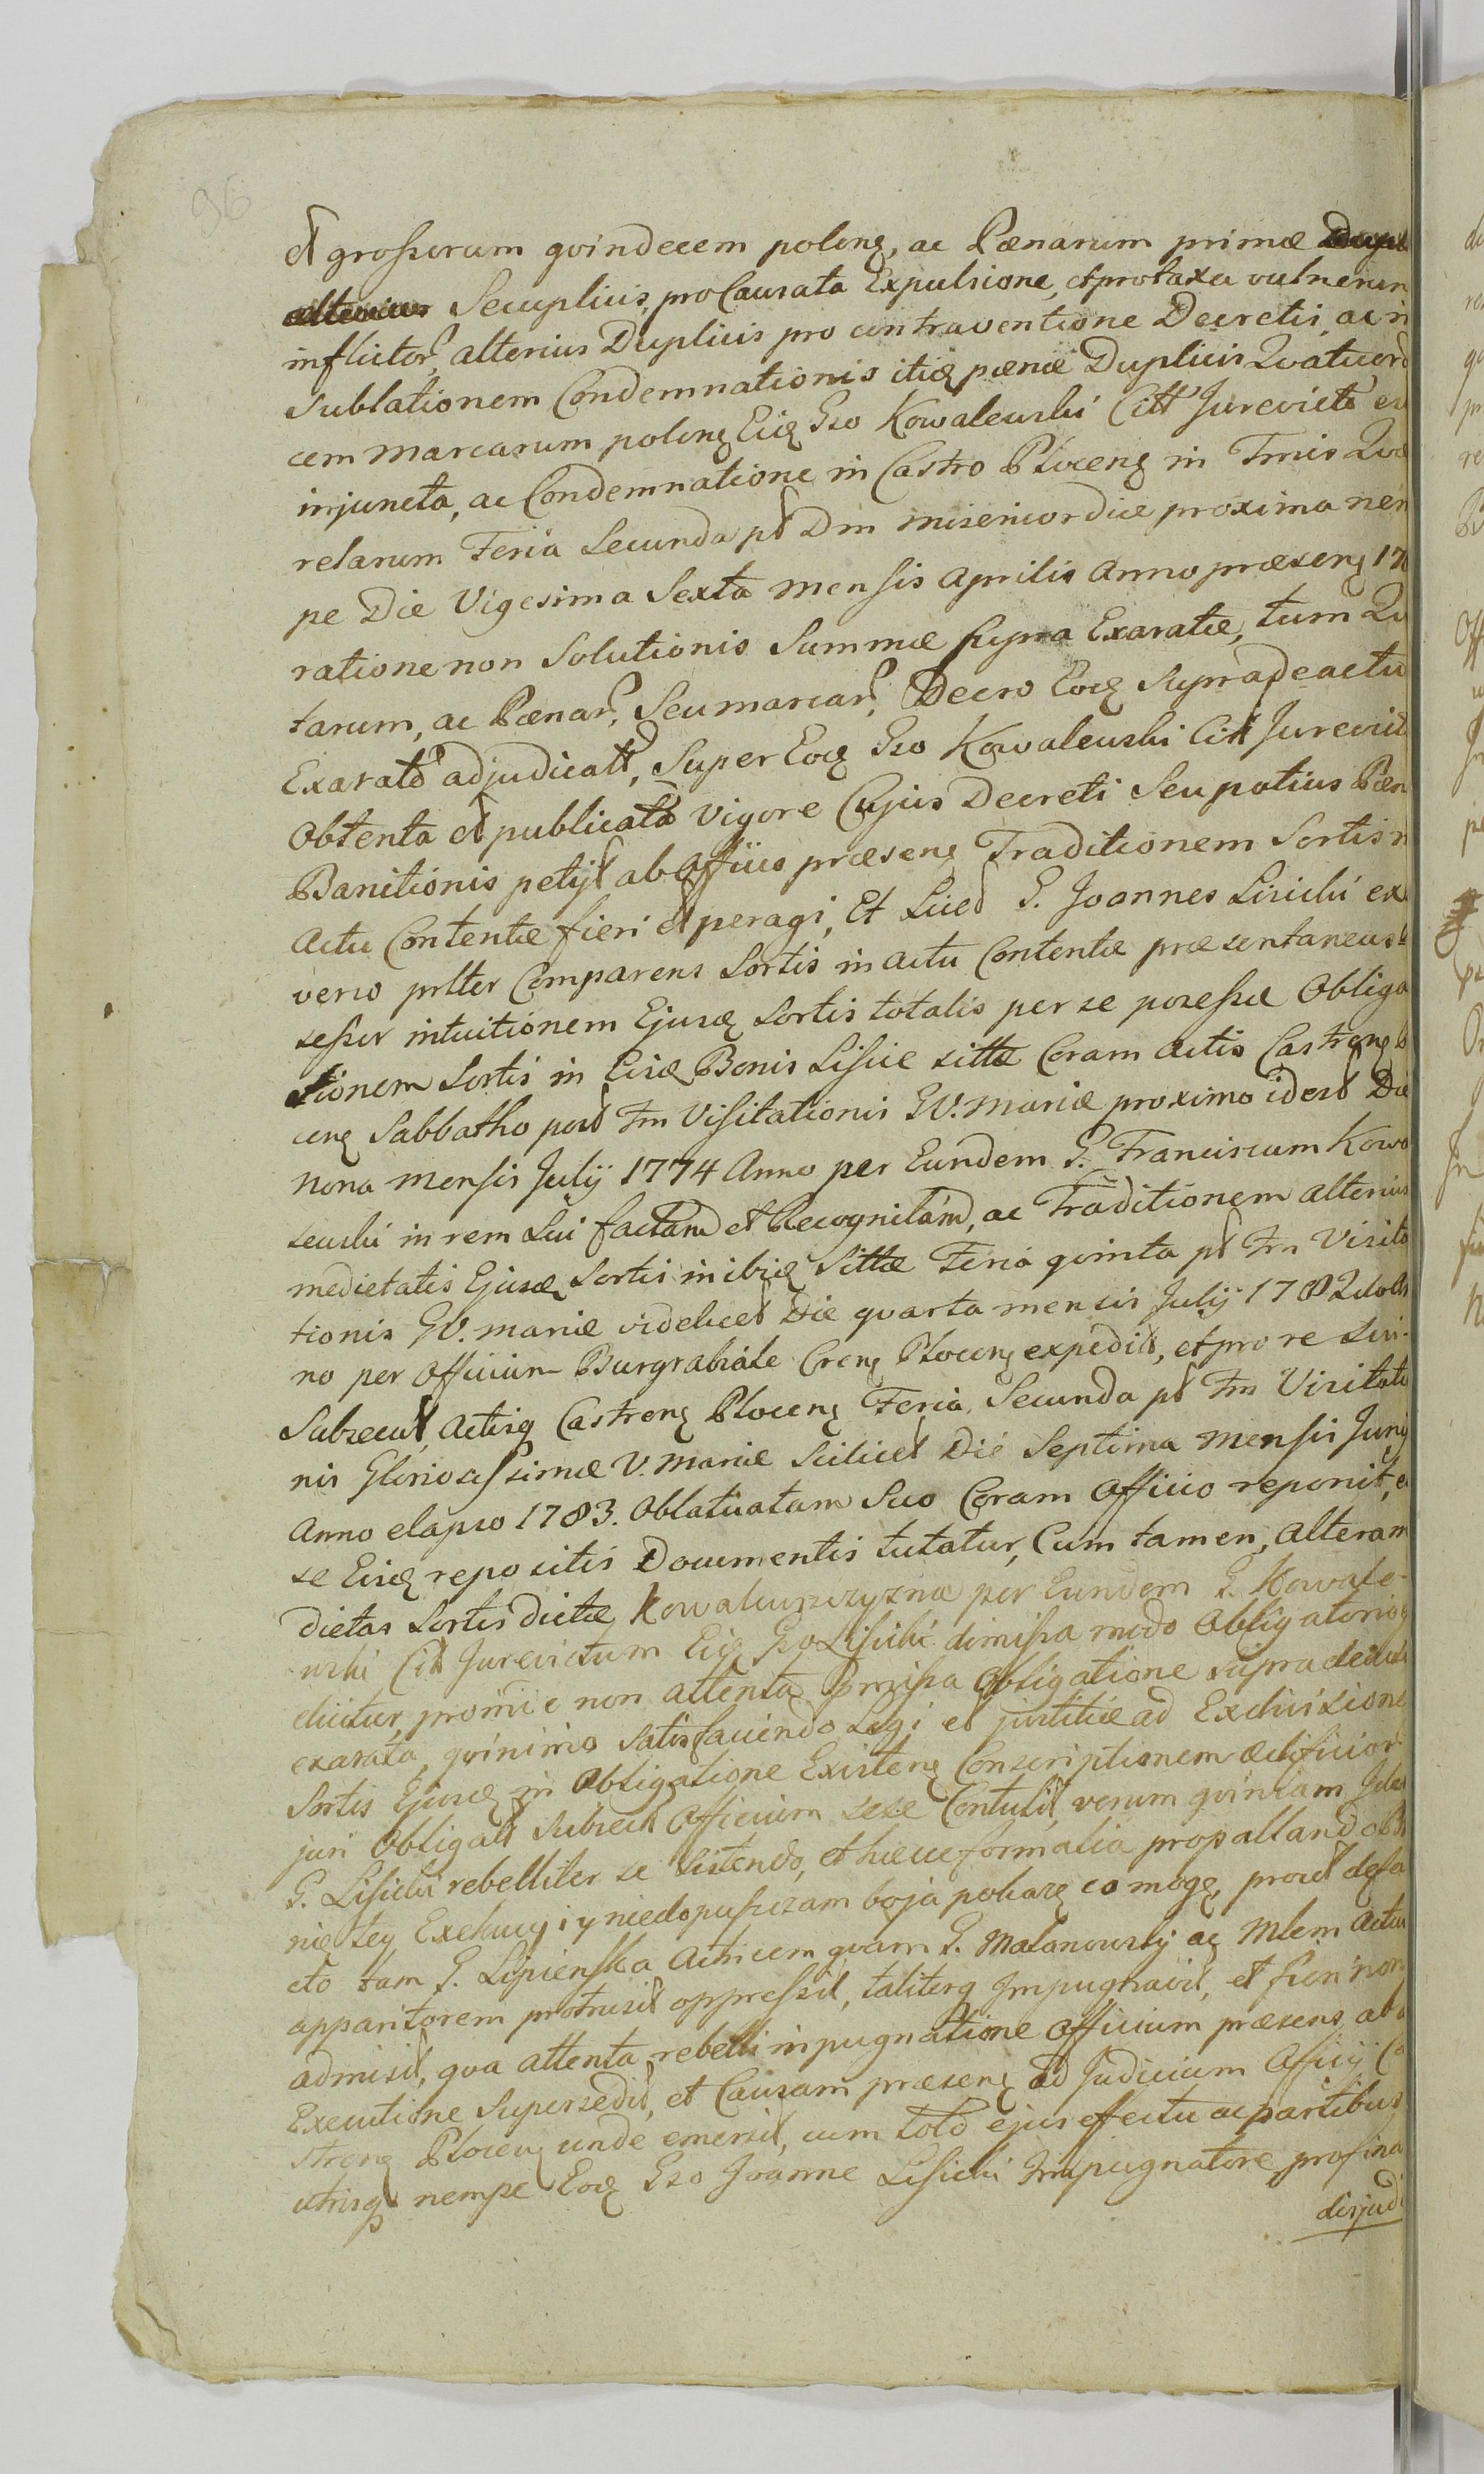 96
et grosserum qvindecem poloną, ac Pœnarum primæ
Secuplicis, pro Causata Expulsione, et pro taxa vulnerum
inflictor, alterius Duplicis pro contraventione Decretis, ac
Sublationem Condemnationis itią pœnæ Duplicis Qvatuord
cem Marcarum poloną Eiią Gso Kowalewski Citt Jurevicto
injuncta, ac Condemnatione in Castro Ploceną in Tmis Qve
relarum Feria Secunda pt Dm misericordiæ proxima nem
pe Die Vigesima Sexta Mensis Aprilis Anno præseną 17
ratione non Solutionis Summæ supra Exaratæ, tum
tarum, ac Pœnar, Seu marcar, Decro Eoą Supradeactu
Exarato adjudicatt, Super Eoą Gso Kowalewski Citt Jurevict
Obtenta et publicata vigore Cujus Decreti Seu potius Pœn
Banitionis petijt ab Officio præseną Traditionem Sortis
Actu Contentæ fieri et peragi, Et Lied G. Joannes Lisicki ex
verso prlter Comparens Sortis in actu Contentæ præsentaneus
sessor intuitionem Ejusą Sortis totalis per se posessæ Obliga
tionem Sortis in Eisą Bonis Lisice sittæ Coram Actis Castreną
ceną Sabbatho post Fm Visitationis GV. Mariæ proximo idest Die
Nona Mensis Julij 1774 Anno per Eundem G. Franciscum Kowa
lewski in rem Sui factam et Recognitam, ac Traditionem alterius
medietatis Ejusą Sortis in ibią Sittæ Feria qvinta pt Fm Visita
tionis GV. Mariæ videlicet Die qvarta mensis Julij 1782
no per Officium Burgrabiale Creną Ploceną expedit, et pro re Lisi-
Subsecut, Actisq Castreną Ploceną Feria Secunda pt Fm Visitatio
nis Gloriosissimæ V. Mariæ Scilicet Die Septima Mensis Junij
Anno elapso 1783. Oblatvatam Suo Coram Officio reponit, e
se Eisą repositis Documentis tutatur, Cum tamen, altera m
dietas Sortis dictæ Kowalewszczyznæ per Eundem G. Kowale-
wski Citt Jurevictum Eią Gso Lisicki dimissa modo Obligatorio
dicitur, proinde non attenta Præmissa Obligatione supra deduc
exarata, qvinimo Satisfaciendo Legi et justitiæ ad Exdivisione
Sortis Ejusą in Obligatione Existeną Conscriptionem ædificior
juri Obligatt Subject Officium sese Contulit, verum qvoniam Idem
G. Lisicki rebelliter se Sistendo, et hæcce formalia propallando
nię tey Exekucyi y niedopuszczam bo ja pokażę co mogę, prout de fa
cto tam G. Lipienska Actricem qvam G. Malanowsky ac Mlem Actus
apparitorem protrusit oppressit, taliterq Impugnavit, et fieri non
admisit, qva attenta rebelli inpugnatione Officium præsens, ab
Executione Supersedit, et Causam præseną ad Judicium Officij Ca
streną Ploceną unde emersit, cum toto ejus effectu ac partibus
utrisq nempe Eoą Gso Joanne Lisicki Impugnatore pro fina
disjudi